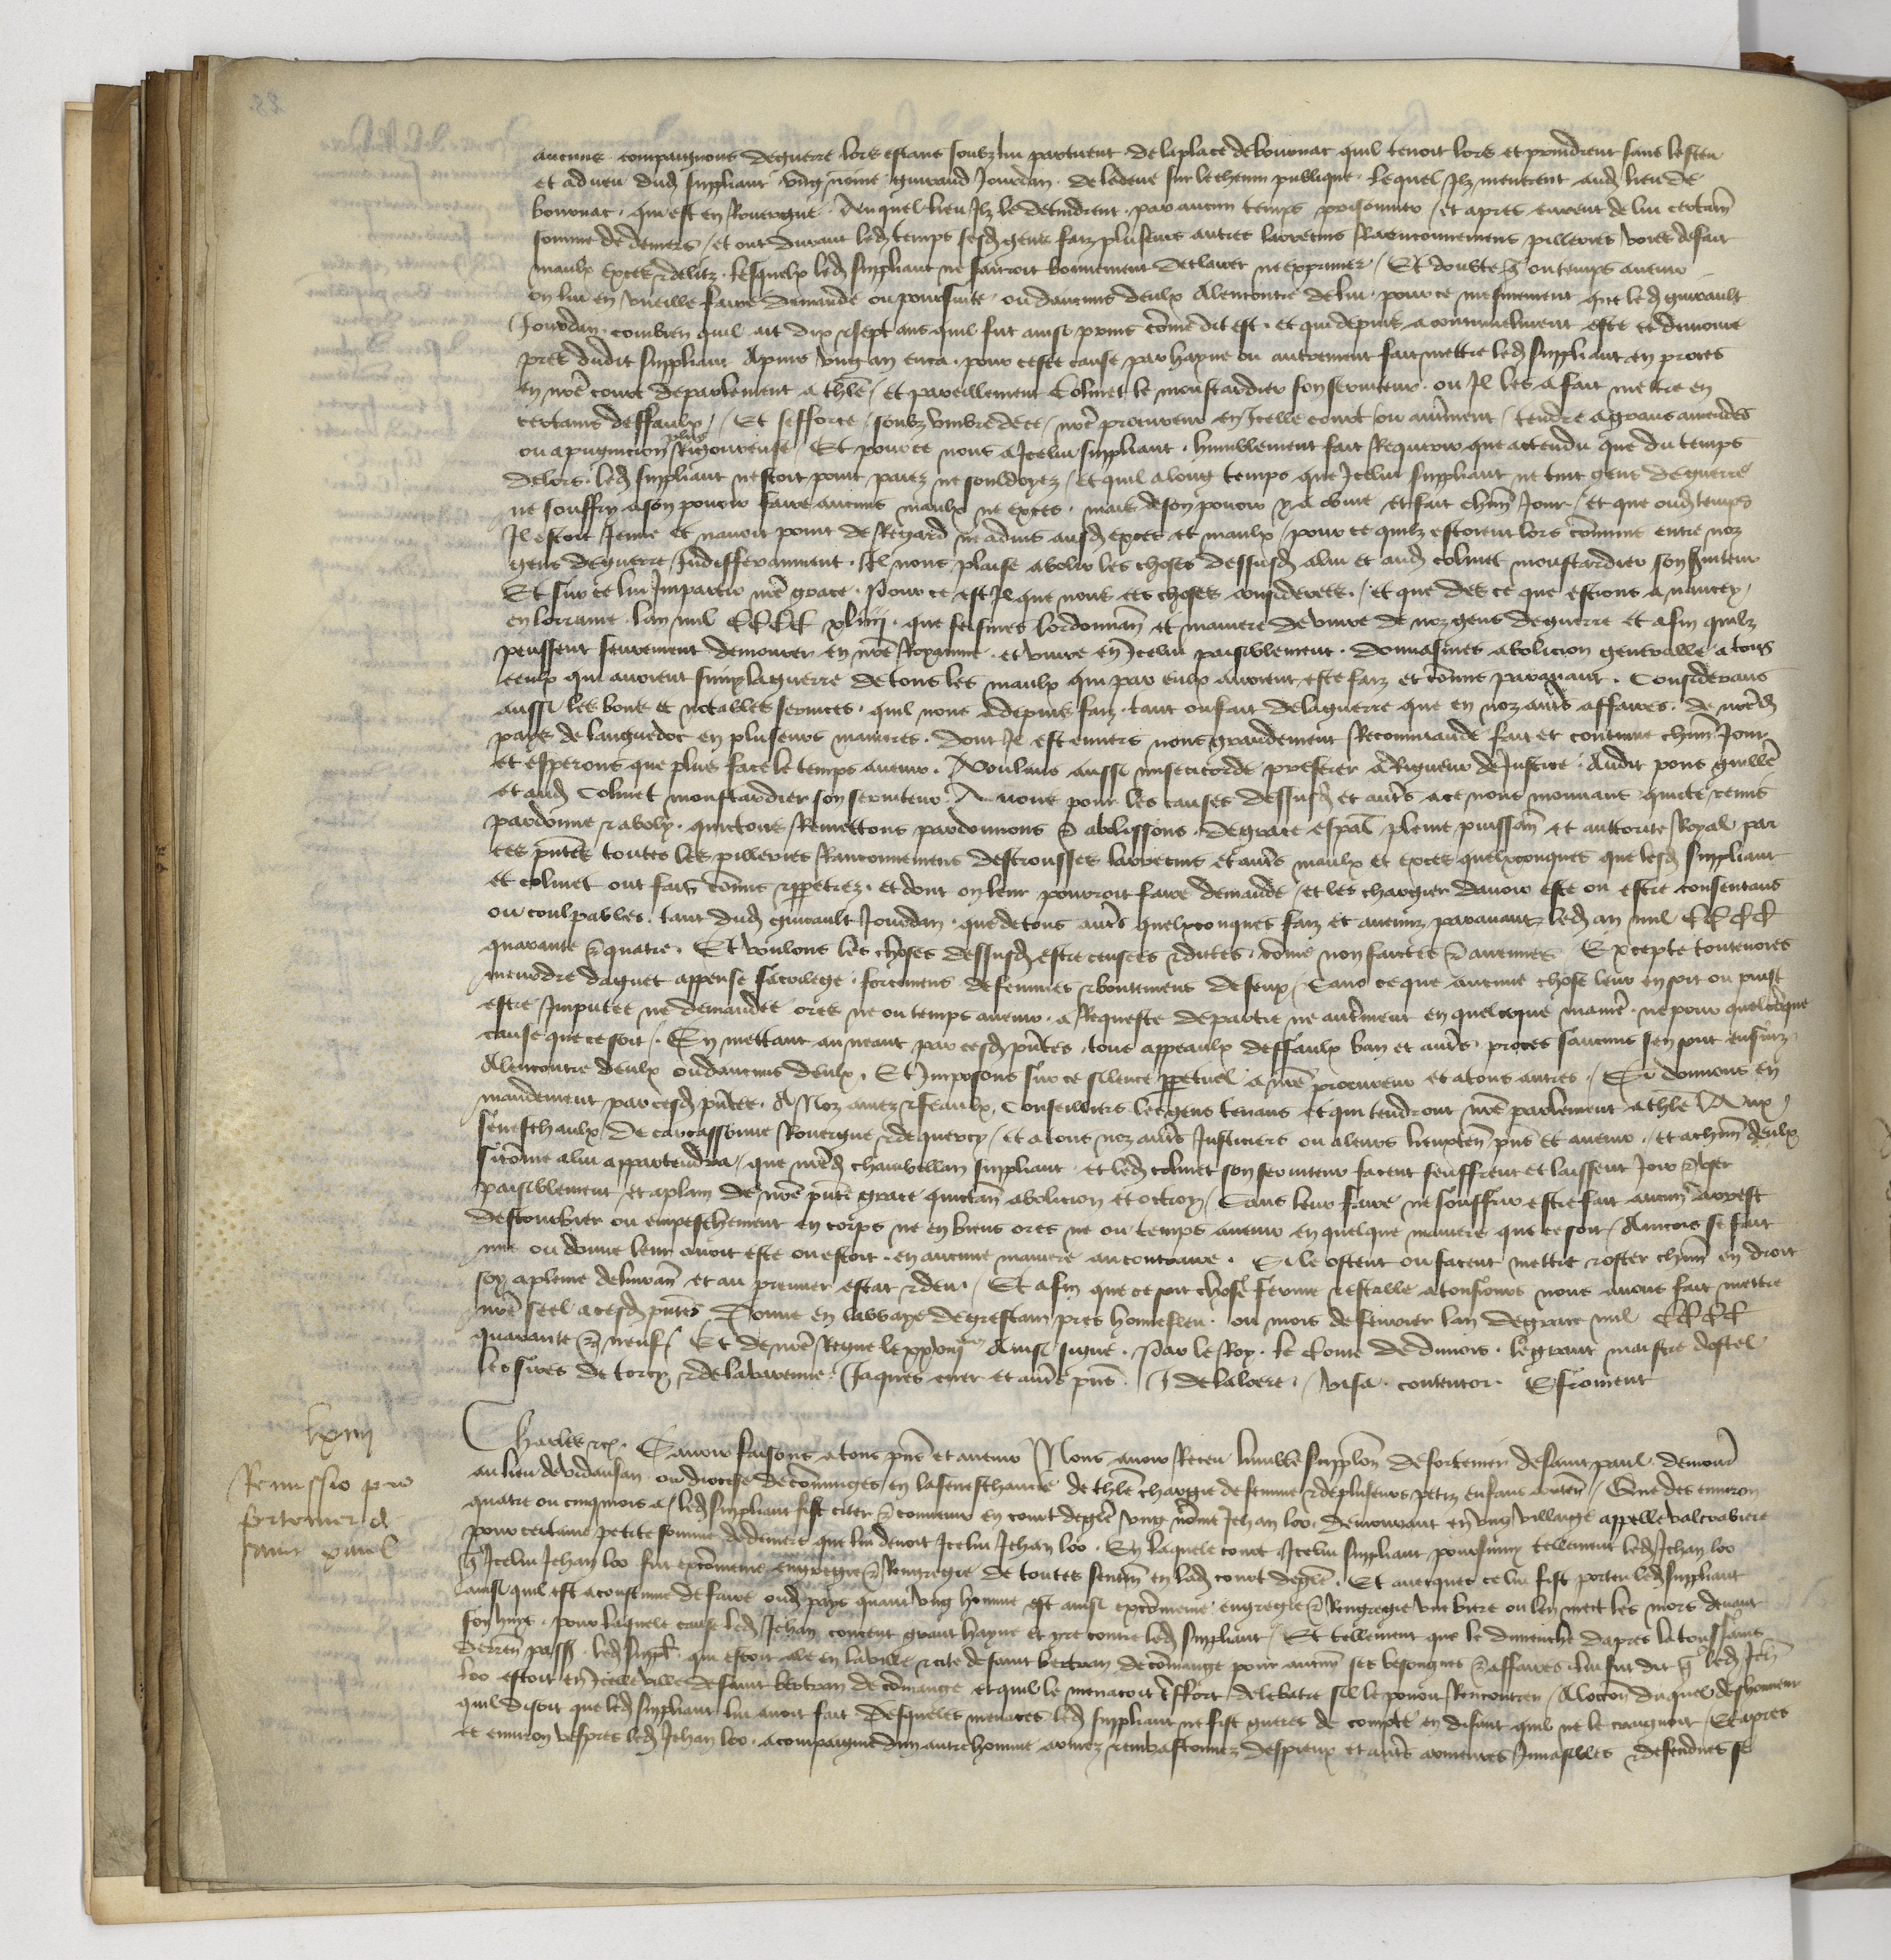 aucuns compaignons de guerre lors estans soubz lui partirent de la place de bournac quil tenoit lors et prindrent sans le sceu
et adveu dud suppliant ung nomme guiraud Jourdan de sur le chemin publique lequel Ilz menerent aud lieu de
bournac qui est en Rouergue Auquel lieu Ilz le detindrent par aucun temps prisonnier et apres eurent de lui certain
somme de deniers et ont durant led temps sesd gens faiz plusieurs autres larrecins Raenconnemens pilleries voies de fait
maulx exces & deliz lesquelx led suppliant ne sauroit bonnement declairer ne exprimer Et doubte q ou temps avenir
on lui en vueille faire demande ou poursuite ou daucuns deulx Alencontre de lui pour ce mesmement que led guirault
Jourdan combien quil ait dix & sept ans quil fut ainsi prins come dit est et qui depuis a continuelment este et demoure
pres dudit suppliant Apuis ung an enca pour ceste cause par hayne ou autrement fait mettre led suppliant en proces
en nre court de parlement a thle et pareillement Colinet le moustardier son serviteur ou Il les a fait mettre en
certains deffaulx Et sefforce soubz umbre de ce nre procureur en Icelle court ou autment tendre a grans amendes
ou a pugnicion plus Rigoureuse Et pour ce nous a Icelui suppliant humblement fait Requerir que attendu que du temps
de lors led suppliant nestoit point paiez ne souldoyez et quil a long temps que Icelui suppliant ne tint gens de guerre
ne souffry a son povoir faire aucuns maulx ne exces mais de son povoir y a obvie et fait chun Jour et que oud temps
Il estoit Jeune et navoit point de Regard ne advis ausd exces et maulx pour ce quilz estoient lors comuns entre noz
gens de guerre Indifferanment Il nous plaise abolir les choses dessusd a lui et aud colinet moustardier son sviteur
Et sur ce lui Impartir nre grace Pour ce est Il que nous ces choses considerees et que des ce que estions a nancey
en lorraine lan mil CCCC xliiij que feismes lordonnan et maniere de vivre de noz gens de guerre et afin quilz
peussent seurement demourer en nre Royaume et vivre en Icelui paisiblement donnasmes abolicion generalle a tous
ceulx qui avoient suivy la guerre de tous les maulx qui par eulx avoient este faiz et comis paravant Considerans
aussi les bons et notables services quil nous a depuis faiz tant ou fait de la guerre que en noz autres affaires de nred
pays de languedoc en plusieurs manieres dont Il est envers nous grandement Recommande fait et continue chun Jour
et esperons que plus face le temps avenir Voulans aussi misericorde preferer a Rigueur de Justice Audit pons guillem
et aud Colinet moustardier son serviteur Avons pour les causes dessusd et autres a ce nous mouvans quicte remis
pardonne & aboly quictons Remettons pardonnons & abolissons de grace espal pleine puissan et auttorite Royal par
ces pntes toutes les pilleries Ranconnemens destrousses larrecins et autres maulx et exces quelxconques que lesd suppliant
et colinet ont faits comis & ppetrez et dont on leur pourroit faire demande et les chargier davoir este ou estre consentans
ou coulpables tant dud guirault Jourdan que de tous autres quelxconques faiz et avenuz paravant led an mil CCCC
quarante & quatre Et voulons les choses dessusd estre censees & dictes come non faictes & avenues Excepte toutevoies
meurdre daguet appense sacrilege forcemens de femmes & boutemens de feux Sans ce que aucune chose leur en soit ou puist
estre Imputee ne demandee ores ne ou temps avenir a Requeste de partie ne autment en quelcoque maniere ne pour quelcoque
cause que ce soit En mettant au neant par cesd pntes tous appeaulx deffaulx ban et autres proces saucuns sen sont ensuiz
Alencontre deulx ou daucuns deulx Et Imposons sur ce silence ppetuel a nre procureur et a tous autres Si donnons en
mandement par cesd pntes A Noz amez & feaulx Conseilliers les gens tenans et qui tendront nre parlement a thle Aux
seneschaulx de carcassonne Rouergue & de quercy et a tous noz autres Justiciers ou a leurs lieuxten pns et avenir et a chun deulx
si come a lui appartendra que nred chambellan suppliant et led colinet son serviteur facent seuffrent et laissent Joir & user
paisiblement et a plain de nre pnte grace quictan abolicion et octroy Sans leur faire ne souffrir estre fait aucun arrest
destourbier ou empeschement en corps ne en biens ores ne ou temps avenir en quelque maniere que ce soit Aincois se fait
mis ou donne leur avoit este ou estoit en aucune maniere au contraire Si le ostent ou facent mettre & oster chun en droit
soy a pleine delivran et au premier estat & deu Et afin que ce soit chose ferme & estable a tousiours nous avons fait mettre
nre seel a cesd pntes Donne en labbaye de grestain pres honnefleu ou mois de fevrier lan de grace mil CCCC
quarante & neuf Et de nre Regne le xxviij Ainsi signe Par le Roy le Conte de dunois le grant maistre dostel
les sires de torcy & de la varenne Jaques cuer et autres pns J de laloere visa contentor E froment
lxiiij
Remissio pro
fortanier de
saint paul
Charles &c Savoir faisons a tous pns et avenir Nous avoir Receu lumble supplon de fortenier de saint paul demour
au lieu de vidaussan ou diocese de comminges en la seneschaucie de thle chargie de femme & de plusieurs petiz enfans conten Que des environ
quatre ou cinq mois a led suppliant fist citer & convenir en court degle ung nome Jehan loo demourant en ung village appelle valcabrere
pour certaine petite somme de deniers que lui devoit Icelui Jehan loo En laquele court Icelui suppliant poursuivy tellement led Jehan loo
q Icelui Jehan loo fut excomenie engregie & Rengregie de toutes senten en lad court degle Et avecques ce lui fist porter led suppliant
ainsi quil est acoustume de faire oud pays quant ung homme est ainsi excomenie engregie & Rengregie une biere ou len mect les mors devant
son huys pour laquele cause led Jehan conceut grant hayne et yre contre led suppliant Et tellement que le dimenche dapres la toussains
derren pass led suppl qui estoit ale en la ville & cite de saint bertran de comange pour aucuns ses besongnes & affaires lui fut dit q led Jeh
loo estoit en Icelle ville de saint bertran de comange et quil le menacoit fort de le batre sil le povoit Rencontrer Alocon duquel deshonneur
quil disoit que led suppliant lui avoit fait desqueles menaces led suppliant ne fist gueres de compte en disant quil ne le craignoit Et apres
et environ vespres led Jehan loo acompaigne dun autre homme armez & embastonnez despieux et autres armeures Invasibles & defendues se